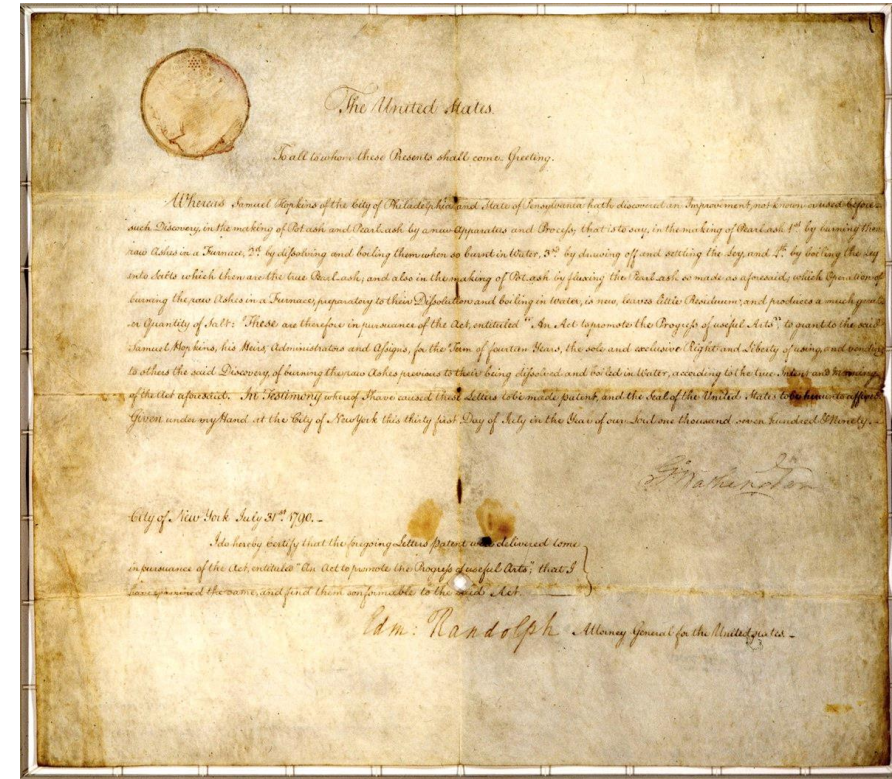 The United States.
To all to whom these Presents shall come, Greeting.
Whereas Samuel Hopkins of the City of Philadelphia and State of Pensylvania hath discovered an Improvement, not known or used before
such Discovery, in the making of Pot ash and Pearl ash by a new Apparatus and Process; that is to say, in the making of Pearl ash 1st by burning the
raw Ashes in a Furnace, 2d by dissolving and boiling them when so burnt in Water, 3d by drawing off and settling the Ley, and 4th by boiling the Ley
into Salts which then are the true Pearl ash; and also in the making of Pot ash by fluxing the Pearl ash so made as aforesaid; which Operation of
burning the raw Ashes in a Furnace, preparatory to their Dissolution and boiling in Water, is new, leaves little Residuum; and produces a much great=
er Quantity of Salt: These are therefore in pursuance of the Act, entituled "An Act to promote the Progress of useful Arts", to grant to the said
Samuel Hopkins, his Heirs, Administrators and Assigns, for the Term of fourteen Years, the sole and exclusive Right and Liberty of using, and vending
to others the said Discovery, of burning the raw Ashes previous to their being dissolved and boiled in Water, according to the true Intent and meaning
of the Act aforesaid. In Testimony whereof I have caused these Letters to be made patent, and the Seal of the United States to be hereunto affixed
Given under my Hand at the City of New York this thirty first Day of July in the Year of our Lord one thousand seven hundred & Ninety.
G Washington
City of New York July 31st 1790. –
I do hereby Certify that the foregoing Letters patent were delivered to me
in pursuance of the Act, entituled "An Act to promote the Progress of useful Arts"; that I
have examined the same, and find them conformable to the said Act.
Edm: Randolph Attorney General for the United States –